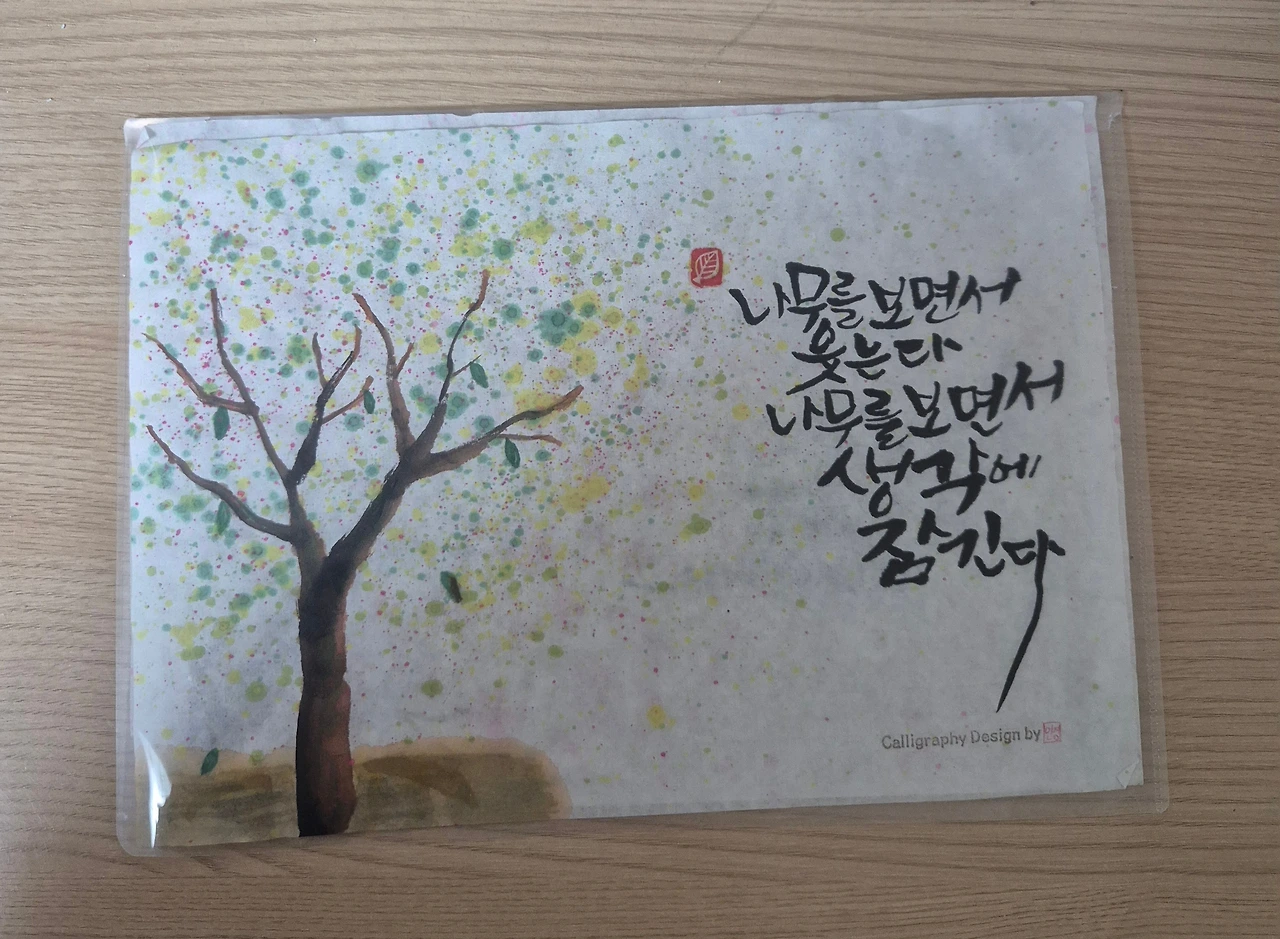 나무를 보면서
웃는다
나무를 보면서
생각에
잠긴다
Calligraphy Design by